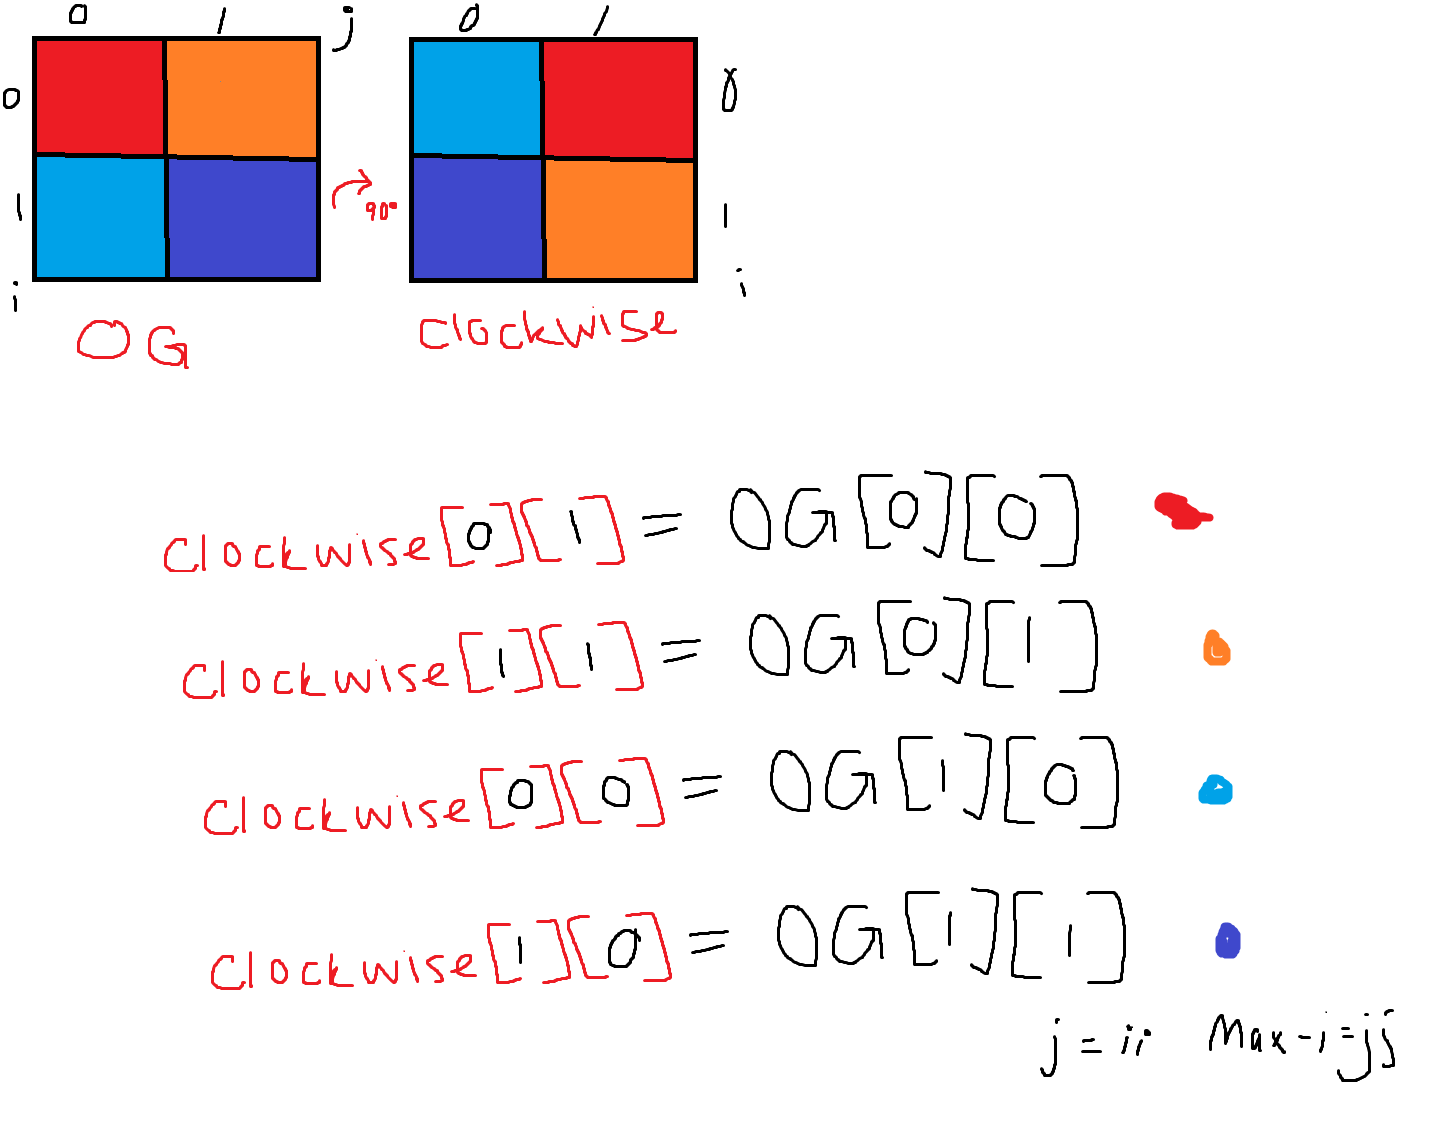 0 1 j 0 1
0 0
1 90° 1
i i
OG clockwise
clockwise[0][1] = OG[0][0]
clockwise[1][1] = OG[0][1]
clockwise[0][0] = OG[1][0]
clockwise[1][0] = OG[1][1]
j = ii Max - i = jj